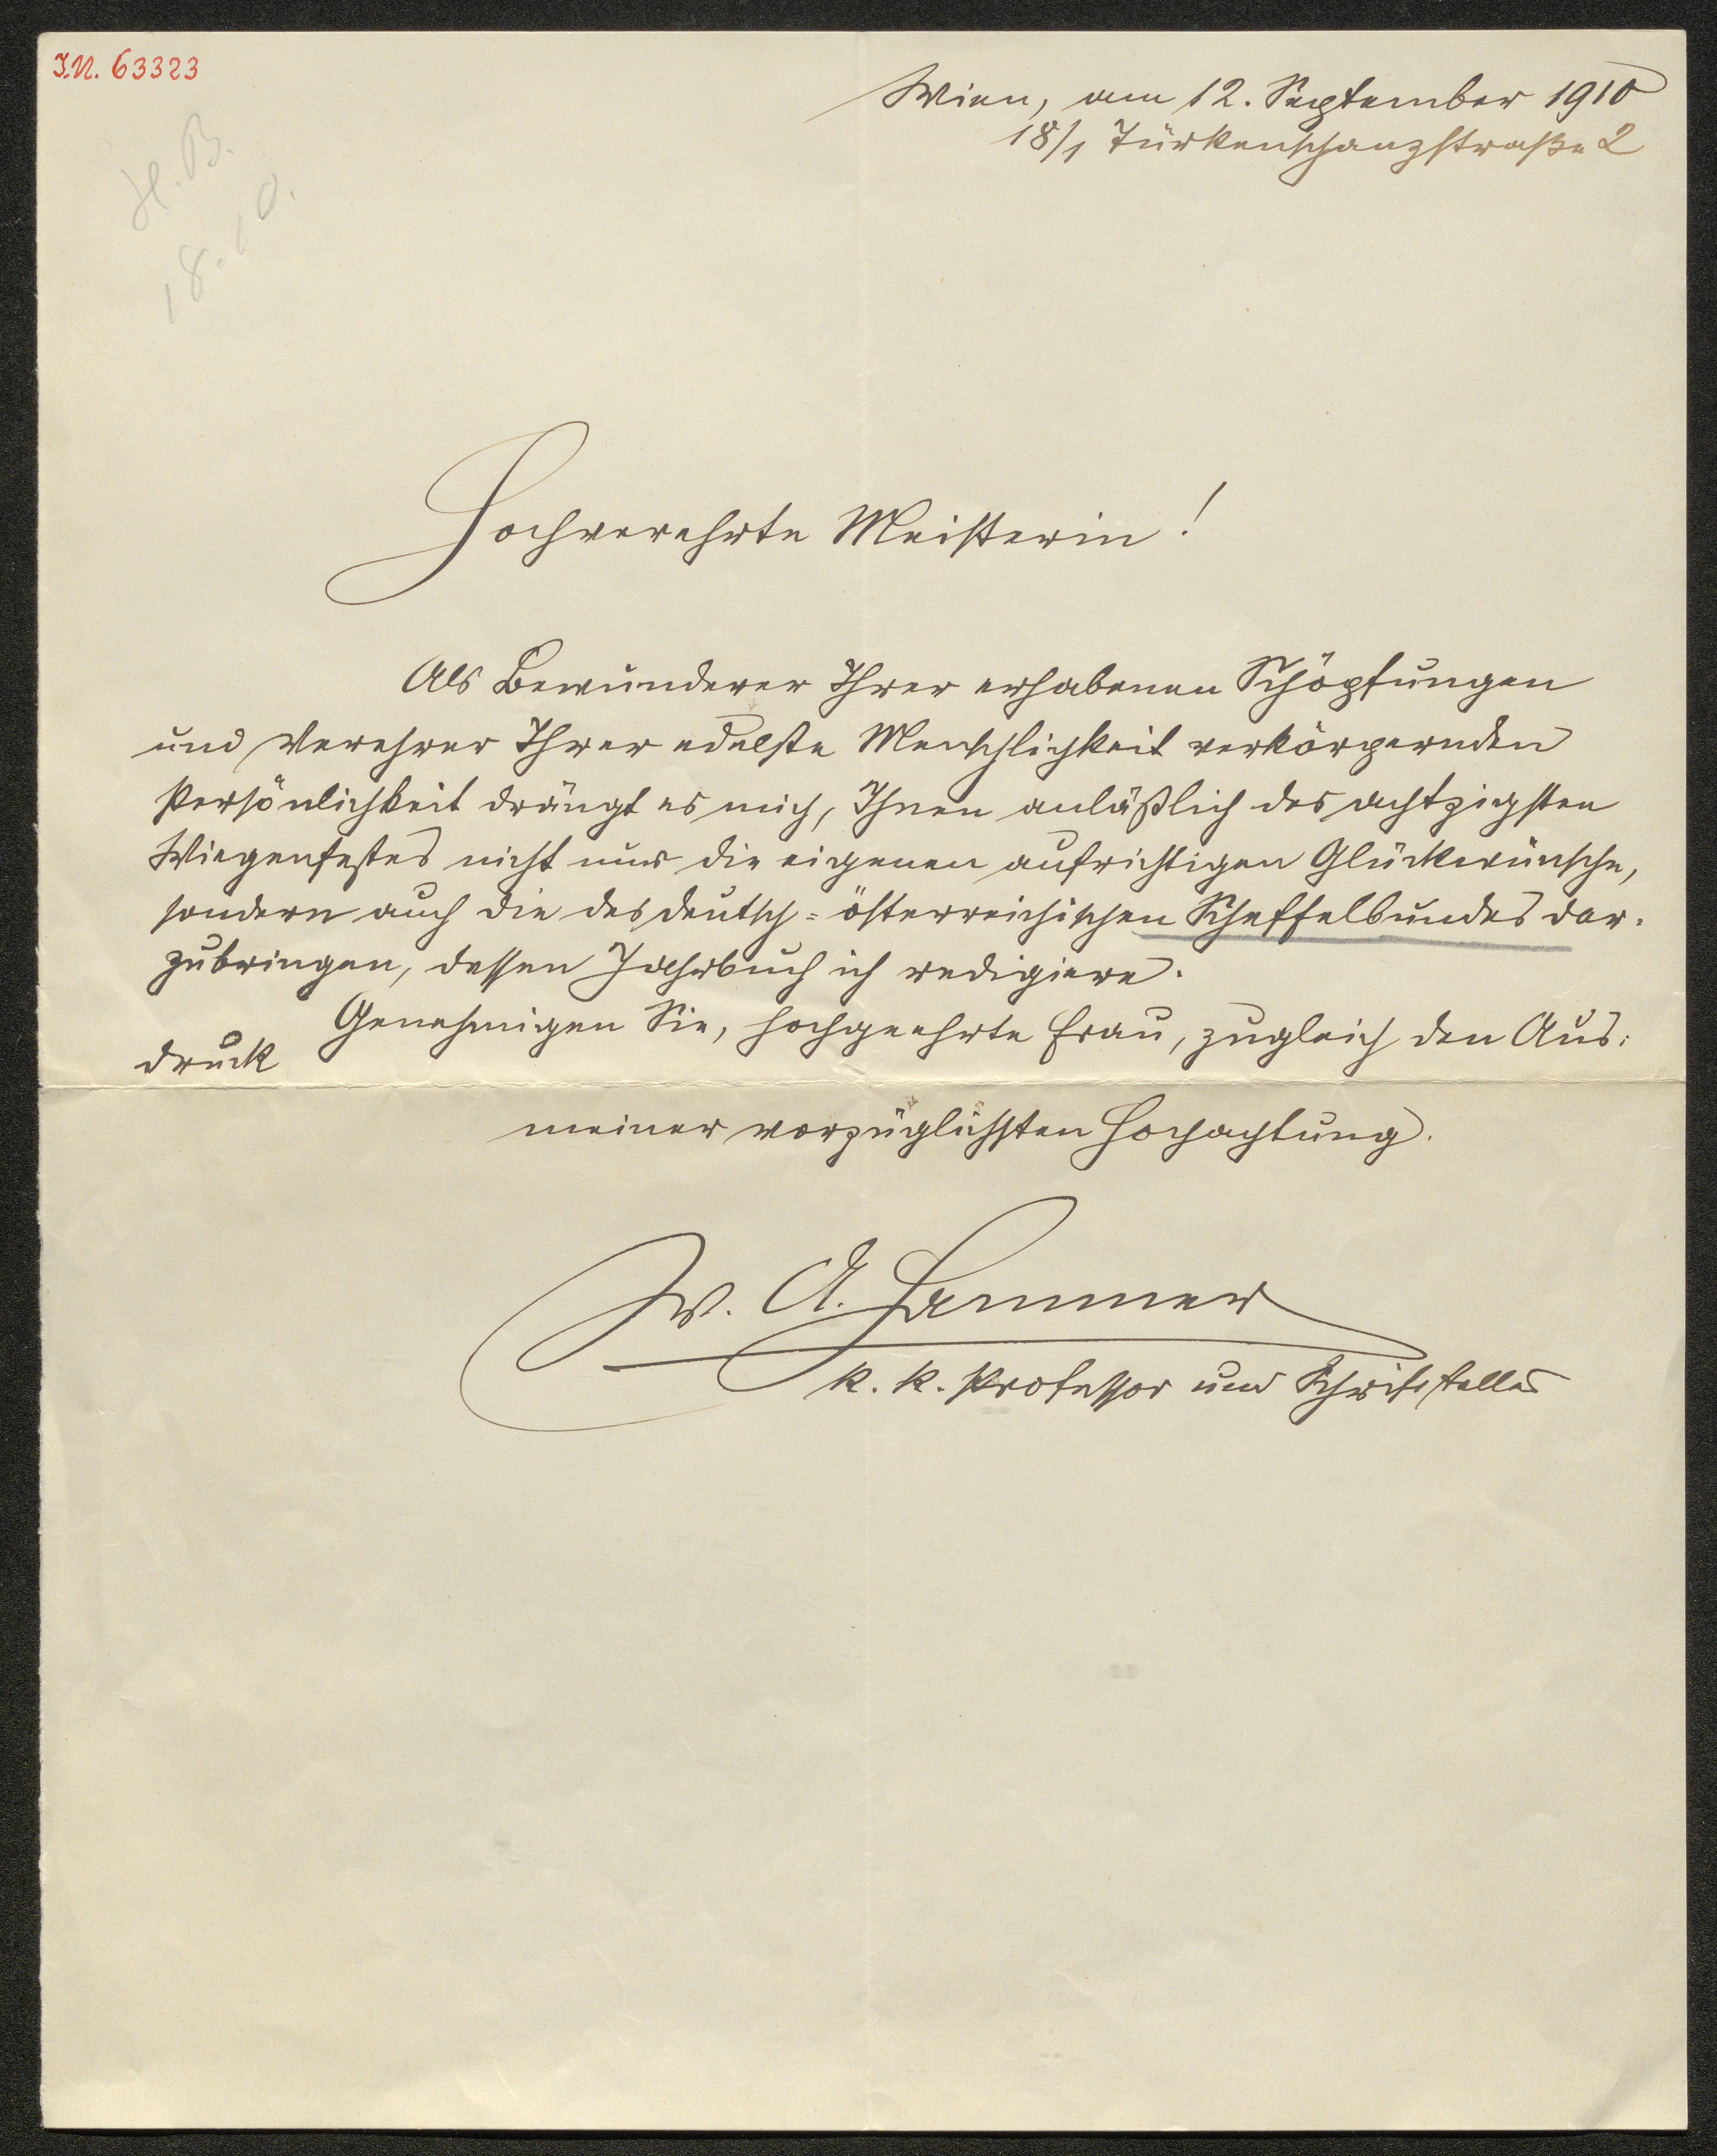 I.N. 63323
Wien, am 12. September 1910
18/1 Türkenschanzstraße 2
H. B.
18.10.
Hochverehrte Meisterin!
Als Bewunderer Ihrer erhabenen Schöpfungen
und Verehrer Ihrer edelste Menschlichkeit verkörpernden
Persönlichkeit drängt es mich, Ihnen anläßlich des achtzigsten
Wiegenfestes nicht nur die eigenen aufrichtigen Glückwünsche,
sondern auch die des deutsch-österreichischen Scheffelbundes dar-
zubringen, dessen Jahrbuch ich redigiere.
Genehmigen Sie, hochgeehrte Frau, zugleich den Aus-
druck
meiner vorzüglichsten Hochachtung.
W. A. Hammer
k. k. Professor und Schriftsteller